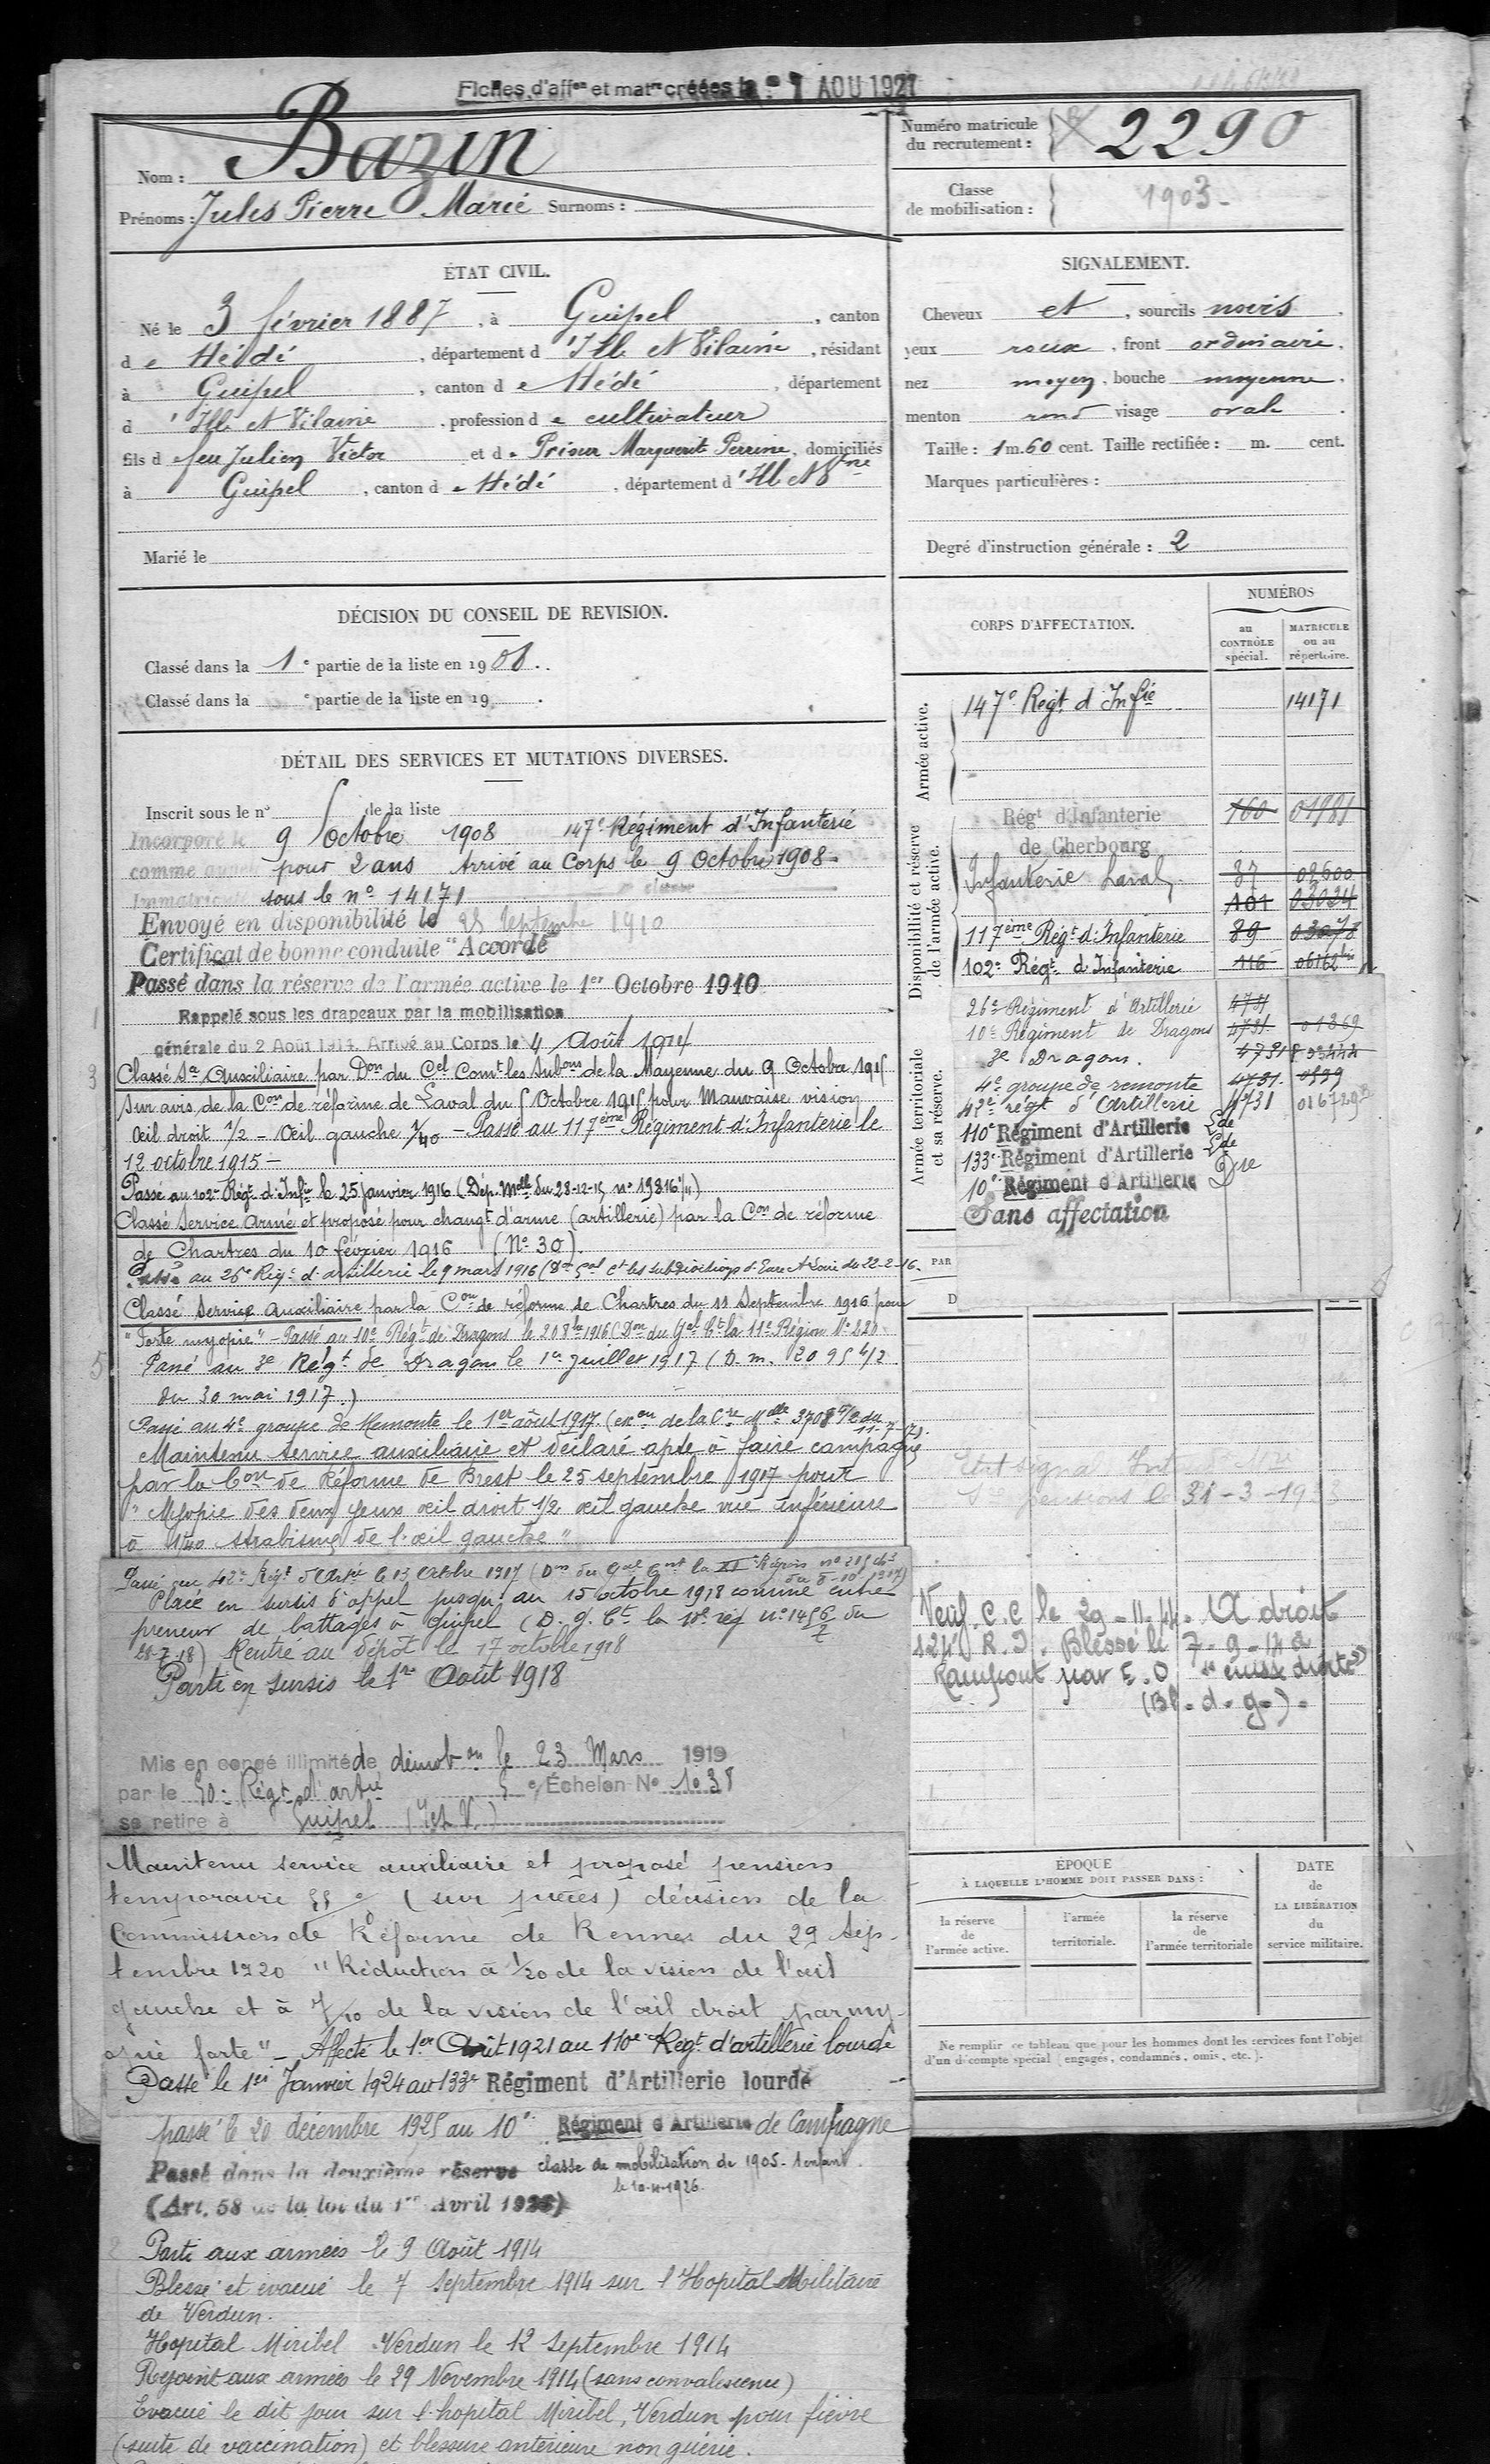 Fiches d'aff<sup>on</sup> et mat<sup>re</sup> créées le 7 AOU 1927
Nom : Bazin
Prénoms : Jules Pierre Marie Surnoms :
Numéro matricule
du recrutement : 2290
Classe
de mobilisation : 1903
ÉTAT CIVIL.
Né le 3 février 1887, à Guipel, canton
de Hédé, département d'Ille et Vilaine, résidant
à Guipel, canton de Hédé, département
d'Ille et Vilaine, profession de cultivateur
fils de feu Julien Victor et de Prieur Marguerite Perrine, domiciliés
à Guipel, canton de Hédé, département d'Ille et Vne
Marié le
SIGNALEMENT.
Cheveux et, sourcils noirs.
yeux roux, front ordinaire.
nez moyen, bouche moyenne.
menton rond visage ovale.
Taille : 1 m. 60 cent. Taille rectifiée : m. cent.
Marques particulières :
Degré d'instruction générale : 2
DÉCISION DU CONSEIL DE REVISION.
Classé dans la 1e partie de la liste en 1908.
Classé dans la e partie de la liste en 19 .
DÉTAIL DES SERVICES ET MUTATIONS DIVERSES.
Inscrit sous le n° de la liste
Incorporé le 9 octobre 1908 147e Régiment d'Infanterie
pour 2 ans Arrivé au Corps le 9 Octobre 1908
Immatriculé sous le n° 14171
Envoyé en disponibilité le 25 septembre 1910
Certificat de bonne conduite "Accordé"
Passé dans la réserve de l'armée active le 1er Octobre 1910
Rappelé sous les drapeaux par la mobilisation
générale du 2 Août 1914. Arrivé au Corps le 4 Août 1914
Classé Sce Auxiliaire par Don du Cel Comt les Subons de la Mayenne du 9 Octobre 1915
sur avis de la Con de réforme de Laval du 5 Octobre 1915 pour Mauvaise vision
Œil droit 1/2 - Œil gauche 1/40 - Passé au 117ème Régiment d'Infanterie le
12 octobre 1915 -
Passé au 102e Régt d'Infie le 25 janvier 1916 (Dép. Melle du 28-12-15 n° 19816 1/11)
Classé Service Armé et proposé pour changt d'arme (artillerie) par la Con de réforme
de Chartres du 10 février 1916 (N° 30).
Passé au 26e Régt d'artillerie le 9 mars 1916 (Don Gal Ct les subdivisions d'Eure et Loir du 22-2-16.
Classé Service Auxiliaire par la Con de réforme de Chartres du 11 Septembre 1916 pour
"Forte myopie" - Passé au 10e Régt de Dragons le 20 8bre 1916 (Don du Gal Ct la 11e Région N° 220
Passé au 3e Régt de Dragons le 1er Juillet 1917 (D.m. 2095 4/2
du 30 mai 1917.)
Passé au 4e groupe de Remonte le 1er août 1917. (en on de la Cre Melle 3708 9/2 du
11-7-17).
Maintenu service auxiliaire et déclaré apte à faire campagne
par la Con de Réforme de Brest le 25 septembre 1917 pour
"Myopie des deux yeux œil droit 1/2 œil gauche vue inférieure
à 1/40 strabisme de l'œil gauche"
Passé au 42e Régt d'Artie le 13 Octobre 1917 (Don du Gal Cnt la XIe Région
du 8-10-1917)
Placé en sursis d'appel jusqu'au 15 octobre 1918 comme entre-
preneur de battages à Guipel (D.G. Ct la 10e rég n° 1456/2 du
28-7-18) Rentré au dépôt le 17 octobre 1918
Parti en sursis le 1er Août 1918
Mis en congé illimité de démobon le 23 Mars 1919
par le 50e Régt d'artie 5e Échelon N° 1038
se retire à Guipel (I et V.)
Maintenu service auxiliaire et proposé pension
temporaire % (sur pièces) décision de la
Commission de Réforme de Rennes du 29 Sep-
tembre 1920 "Réduction à 1/20 de la vision de l'œil
gauche et à 7/10 de la vision de l'œil droit par my-
opie forte" - Affecté le 1er Août 1921 au 110e Régt d'artillerie lourde
Passé le 1er Janvier 1924 au 133e Régiment d'Artillerie lourde
passé le 20 décembre 1925 au 10e Régiment d'Artillerie de Campagne
Passé dans la deuxième réserve classe de mobilisation de 1905 - 1 enfant.
(Art. 58 de la loi du 1er Avril 1923)
Parti aux armées le 9 Août 1914
Blessé et évacué le 7 Septembre 1914 sur l'Hopital Militaire
de Verdun.
Hopital Miribel Verdun le 12 Septembre 1914
Rejoint aux armées le 29 Novembre 1914 (sans convalescence)
Evacué le dit jour sur l'hopital Miribel, Verdun pour fièvre
(suite de vaccination) et blessure antérieure non guérie.
CORPS D'AFFECTATION.
NUMÉROS
au
CONTRÔLE
spécial.
MATRICULE
ou au
répertoire.
Armée active.
147e Régt d'Infie 14171
Disponibilité et réserve
de l'armée active.
Régt d'Infanterie 160 01981
de Cherbourg
Infanterie Laval 87 02600
101 03024
117ème Régt d'Infanterie 89 03078
102e Régt d'Infanterie 116 06162bis
Armée territoriale
et sa réserve.
26e Régiment d'Artillerie 4731
10e Régiment de Dragons 4731 01869
3e Dragons. 4731
4e groupe de remonte 4731 0599
42e régt d'Artillerie 4731
110e Régiment d'Artillerie Lde
133e Régiment d'Artillerie Lde
10e Régiment d'Artillerie Dre
Sans affectation
PAR
D
31-3-193
Neuf. C.C le 29-11-44. A droit
124e R.I. Blessé le 7-9-14 à
Rampont par E.O "cuisse droite"
(Bl-d-g-) -
ÉPOQUE
À LAQUELLE L'HOMME DOIT PASSER DANS :
la réserve
de
l'armée active.
l'armée
territoriale.
la réserve
de
l'armée territoriale
DATE
de
LA LIBÉRATION
du
service militaire.
Ne remplir ce tableau que pour les hommes dont les services font l'objet
d'un décompte spécial (engagés, condamnés, omis, etc.).